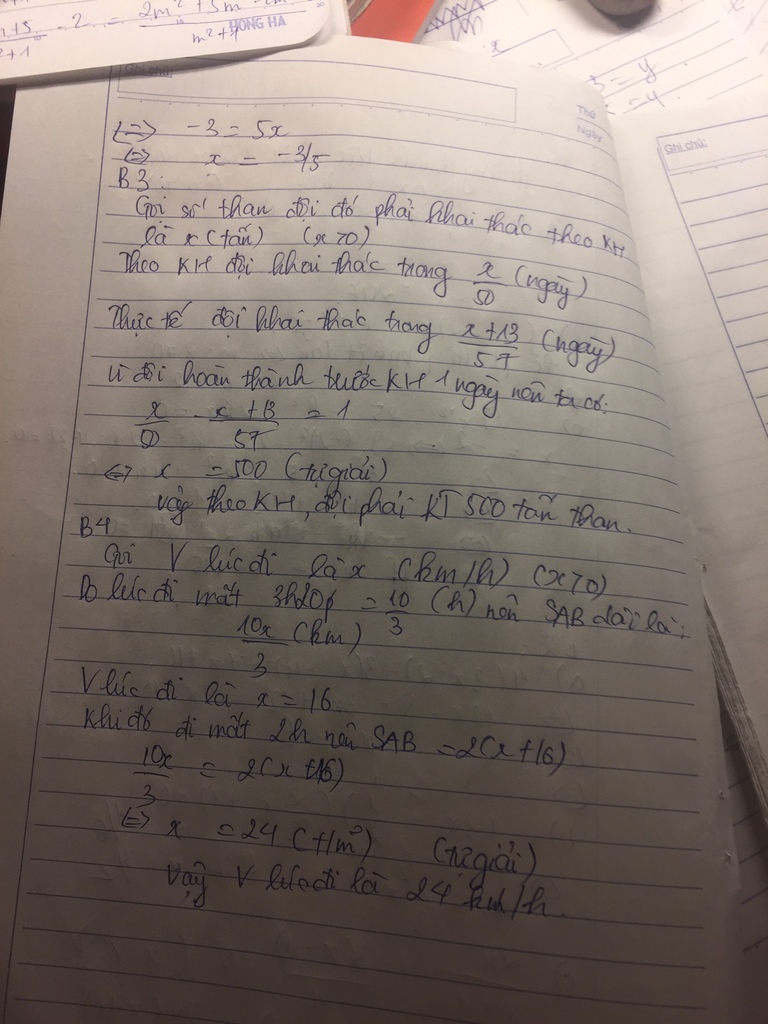 2m² + 5m
- 2 =
m² + 1
HONG HA
= y
Ghi chú:
Thứ
Ngày
Ghi chú:
<=> -3 = 5x
<=> x = -3/5
B3:
Gọi số than đội đó phải khai thác theo KH
là x (tấn) (x>0)
Theo KH đội khai thác trong x/50 (ngày)
Thực tế đội khai thác trong x+13/57 (ngày)
Vì đội hoàn thành trước KH 1 ngày nên ta có:
x/50 - x+13/57 = 1
<=> x = 500 (tự giải)
Vậy theo KH, đội phải KT 500 tấn than.
B4
Gọi V lúc đi là x (km/h) (x>0)
Do lúc đi mất 3h20p = 10/3 (h) nên SAB dài là:
10x/3 (km)
V lúc đi là x = 16
Khi đó đi mất 2h nên SAB = 2(x+16)
10x/3 = 2(x+16)
<=> x = 24 (t/m) (tự giải)
Vậy V lúc đi là 24 km/h.